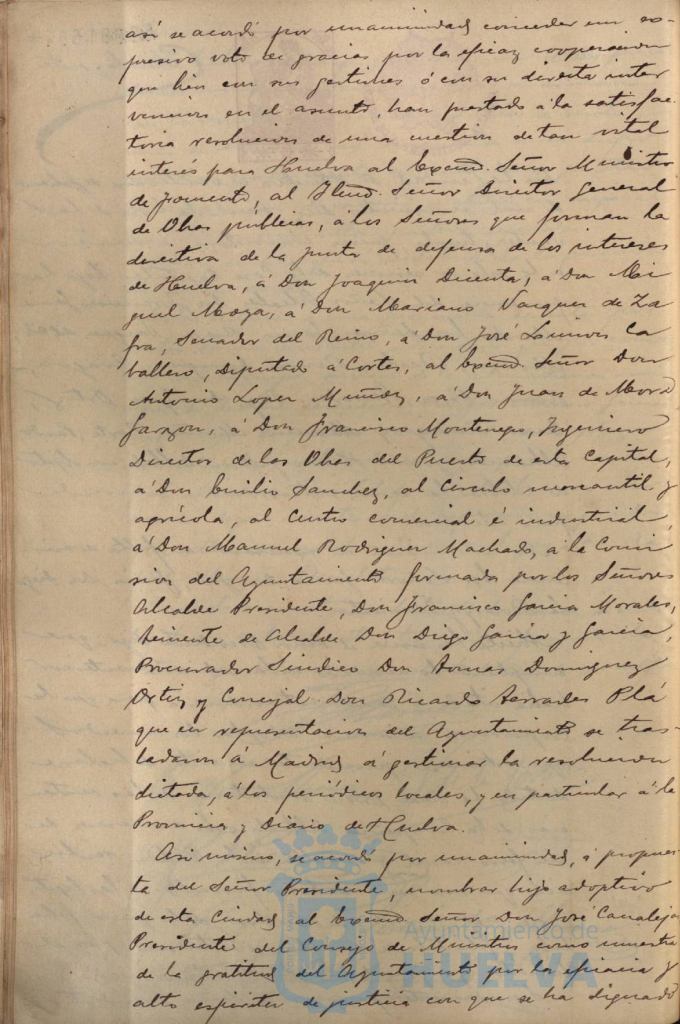 así se acordó por unanimidad conceder un ex-
presivo voto de gracias por la eficaz cooperacion
que bien con sus gestiones ó con su directa inter
vencion en el asunto, han prestado á la satisfac-
toria resolucion de una cuestion de tan vital
interés para Huelva al Excmo. Señor Ministro
de Fomento, al Iltmo. Señor Director General
de Obras públicas, á los Señores que forman la
directiva de la junta de defensa de los intereses
de Huelva, á Don Joaquin Dicenta, á Don Mi
guel Moya, á Don Mariano Vazquez de Za
fra, Senador del Reino, á Don José Limon Ca
ballero, Diputado á Cortes, al Excmo. Señor Don
Antonio Lopez Muñoz, á Don Juan de Mora
Garzon, á Don Francisco Montenegro, Ingeniero
Director de las Obras del Puerto de esta Capital,
á Don Emilio Sanchez, al Círculo mercantil y
agrícola, al Centro comercial é industrial,
á Don Manuel Rodriguez Machado, á la Comi
sion del Ayuntamiento formada por los Señores
Alcalde Presidente, Don Francisco Garcia Morales,
teniente de Alcalde Don Diego Garcia y Garcia,
Procurador Síndico Don Tomas Dominguez
Ortiz y Concejal Don Ricardo Terrades Plá
que en representacion del Ayuntamiento se tras-
ladaron á Madrid á gestionar la resolucion
dictada, á los periódicos locales, y en particular á la
Provincia y Diario de Huelva.
Asi mismo, se acordó por unanimidad, á propues
ta del Señor Presidente, nombrar hijo adoptivo
de esta Ciudad al Excmo. Señor Don José Canalejas
Presidente del Consejo de Ministros como muestra
de la gratitud del Ayuntamiento por la eficacia y
alto espíritu de justicia con que se ha dignado
Ayuntamiento de
HUELVA